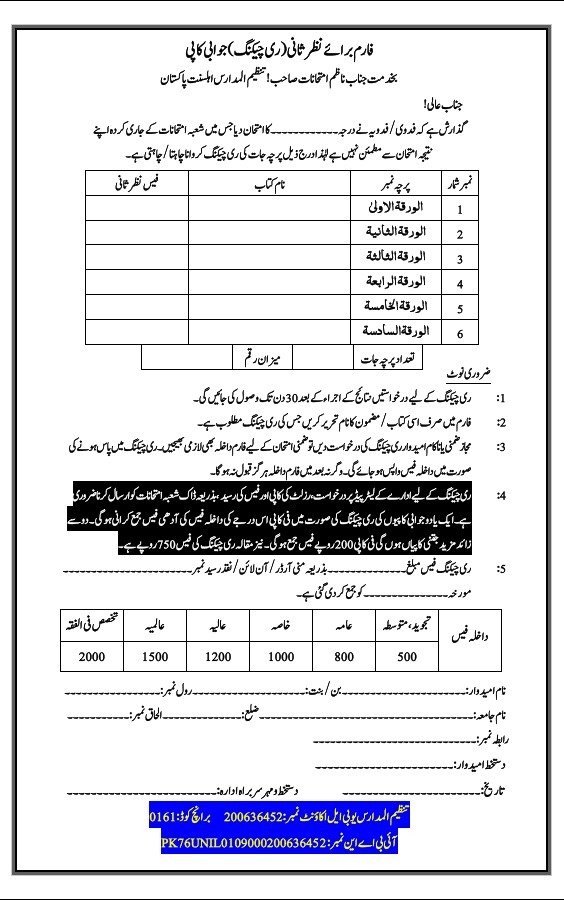 فارم برائے نظر ثانی (ری چیکنگ) جوابی کاپی
بخدمت جناب ناظم امتحانات صاحب! تنظیم المدارس اہلسنت پاکستان
جناب عالی!
گذارش ہے کہ فدوی / فدویہ نے درجہ ____________ کا امتحان دیا جس میں شعبہ امتحانات کے جاری کردہ اپنے
نتیجہ امتحان سے مطمئن نہیں ہے لہٰذا درج ذیل پرچہ جات کی ری چیکنگ کروانا چاہتا / چاہتی ہے۔
نمبر شمار پرچہ نمبر نام کتاب فیس نظر ثانی
1 الورقة الاولیٰ
2 الورقة الثانیة
3 الورقة الثالثة
4 الورقة الرابعة
5 الورقة الخامسة
6 الورقة السادسة
تعداد پرچہ جات میزان رقم
ضروری نوٹ
1: ری چیکنگ کے لیے درخواستیں نتائج کے اجراء کے بعد 30 دن تک وصول کی جائیں گی۔
2: فارم میں صرف اسی کتاب / مضمون کا نام تحریر کریں جس کی ری چیکنگ مطلوب ہے۔
3: مجاز ضمنی یا ناکام امیدوار ری چیکنگ کی درخواست دیں تو ضمنی امتحان کے لیے فارم داخلہ بھی لازمی بھیجیں۔ ری چیکنگ میں پاس ہونے کی
صورت میں داخلہ فیس واپس ہو جائے گی۔ وگرنہ بعد میں فارم داخلہ ہرگز قبول نہ ہوگا۔
4: ری چیکنگ کے لیے ادارے کے لیٹر پیڈ پر درخواست، رزلٹ کی کاپی اور فیس کی رسید بذریعہ ڈاک شعبہ امتحانات کو ارسال کرنا ضروری
ہے۔ ایک یا دو جوابی کاپیوں کی ری چیکنگ کی صورت میں فی کاپی اس درجے کی داخلہ فیس کی آدھی فیس جمع کرانی ہوگی۔ دو سے
زائد مزید جتنی کاپیاں ہوں گی فی کاپی 200 روپے فیس جمع ہوگی۔ نیز مقالہ ری چیکنگ کی فیس 750 روپے ہے۔
5: ری چیکنگ فیس مبلغ ____________ بذریعہ منی آرڈر / آن لائن / نقد رسید نمبر ____________
مورخہ ____________ کو جمع کردی گئی ہے۔
داخلہ فیس تجوید، متوسطہ عامہ خاصہ عالیہ عالمیہ تخصص فی الفقہ
500 800 1000 1200 1500 2000
نام امیدوار: ____________ بن / بنت: ____________ رول نمبر: ____________
نام جامعہ: ____________ ضلع: ____________ الحاق نمبر: ____________
رابطہ نمبر: ____________
دستخط امیدوار: ____________
تاریخ: ____________ دستخط و مہر سربراہ ادارہ: ____________
تنظیم المدارس یو بی ایل اکاؤنٹ نمبر: 200636452 برانچ کوڈ: 0161
آئی بی اے این نمبر: PK76UNIL0109000200636452